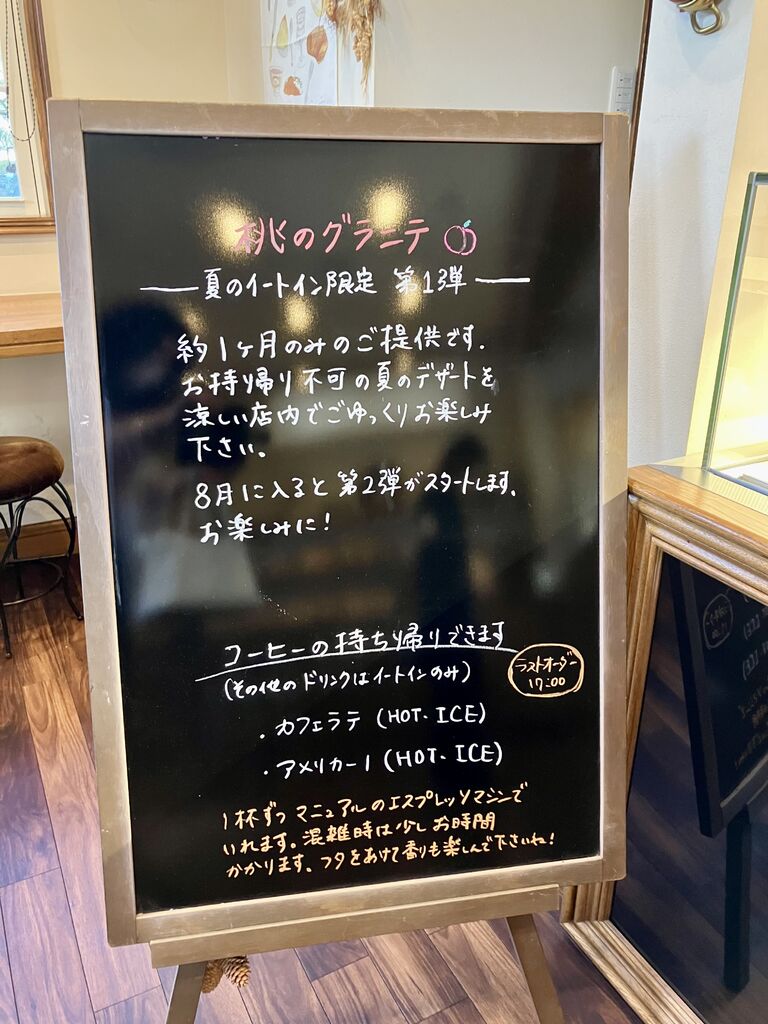 桃のグラニテ
夏のイートイン限定 第1弾
約1ヶ月のみのご提供です.
お持帰り不可の夏のデザートを
涼しい店内でごゆっくりお楽しみ
下さい。
8月に入ると第2弾がスタートします.
お楽しみに!
コーヒーの持ち帰りできます
(その他のドリンクはイートインのみ)
ラストオーダー
17:00
・カフェラテ (HOT・ICE)
・アメリカーノ (HOT・ICE)
1杯ずつマニュアルのエスプレッソマシンで
いれます。混雑時は少しお時間
かかります。フタをあけて香りも楽しんで下さいね!